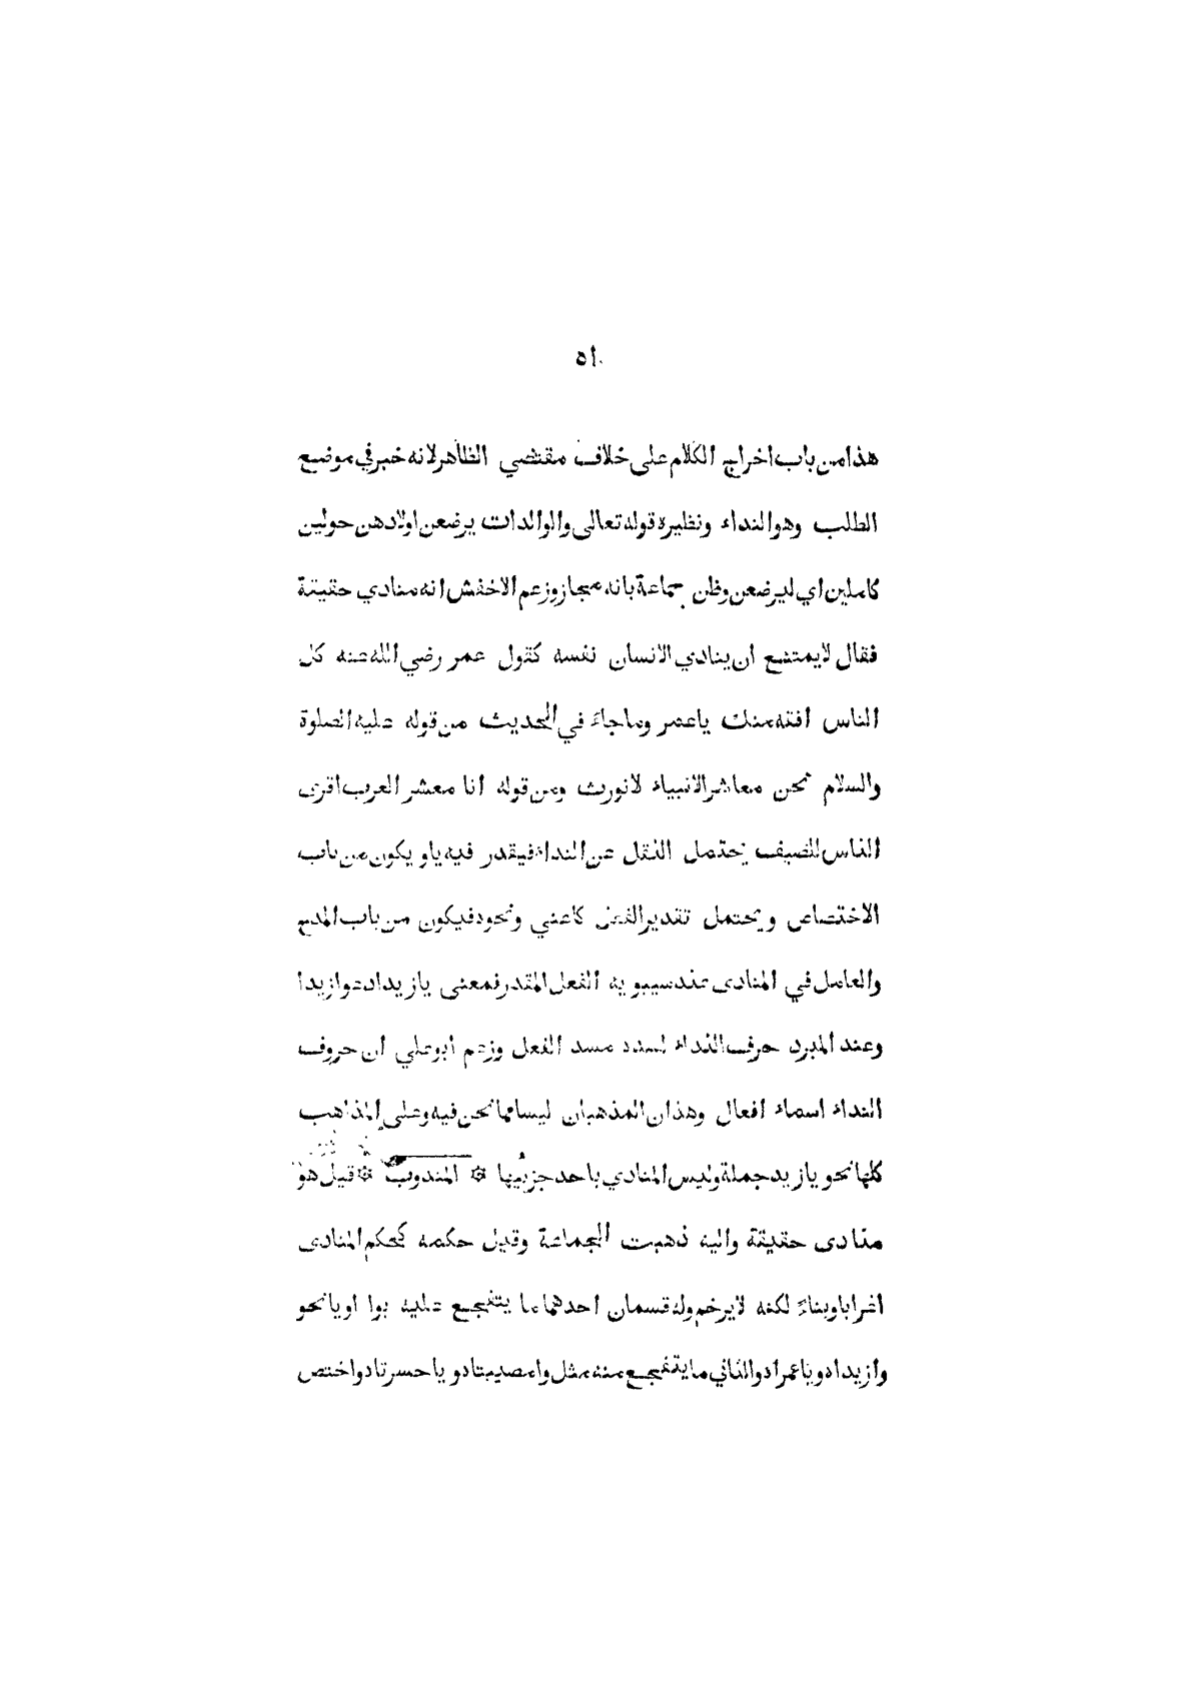 ٥١
هذا من باب اخراج الكلام على خلاف مقتضي الظاهر لانه خبر في موضع
الطلب وهو النداء ونظيره قوله تعالى والوالدات يرضعن اولادهن حولين
كاملين اي ليرضعن وظن جماعة بانه مجاز وزعم الاخفش انه منادي حقيقة
فقال لا يمتنع ان ينادي الانسان نفسه كقول عمر رضي الله عنه كل
الناس افقه منك يا عمر وما جاء في الحديث من قوله عليه الصلوة
والسلام نحن معاشر الانبياء لا نورث ومن قوله انا معشر العرب اقرى
الناس للضيف يحتمل النقل عن النداء فيقدر فيه يا و يكون من باب
الاختصاص ويحتمل تقدير الفعل كاعني ونحوه فيكون من باب المدح
والعامل في المنادى عند سيبويه الفعل المقدر فمعنى يا زيد ادعو ازيدا
وعند المبرد حرف النداء لسده مسد الفعل وزعم أبو علي أن حروف
النداء اسماء افعال وهذان المذهبان ليسا مما نحن فيه وعلى المذاهب
كلها نحو يا زيد جملة وليس المنادي باحد جزئيها ۞ المندوب ۞ قيل هو
منادى حقيقة واليه ذهبت الجماعة وقيل حكمه كحكم المنادى
اعرابا وبناءً لكنه لا يرخم وله قسمان احدهما ما يتفجع عليه بوا او يا نحو
وازيداه ويا عمراه والثاني ما يتفجع منه مثل وامصيبتاه ويا حسرتاه واختص